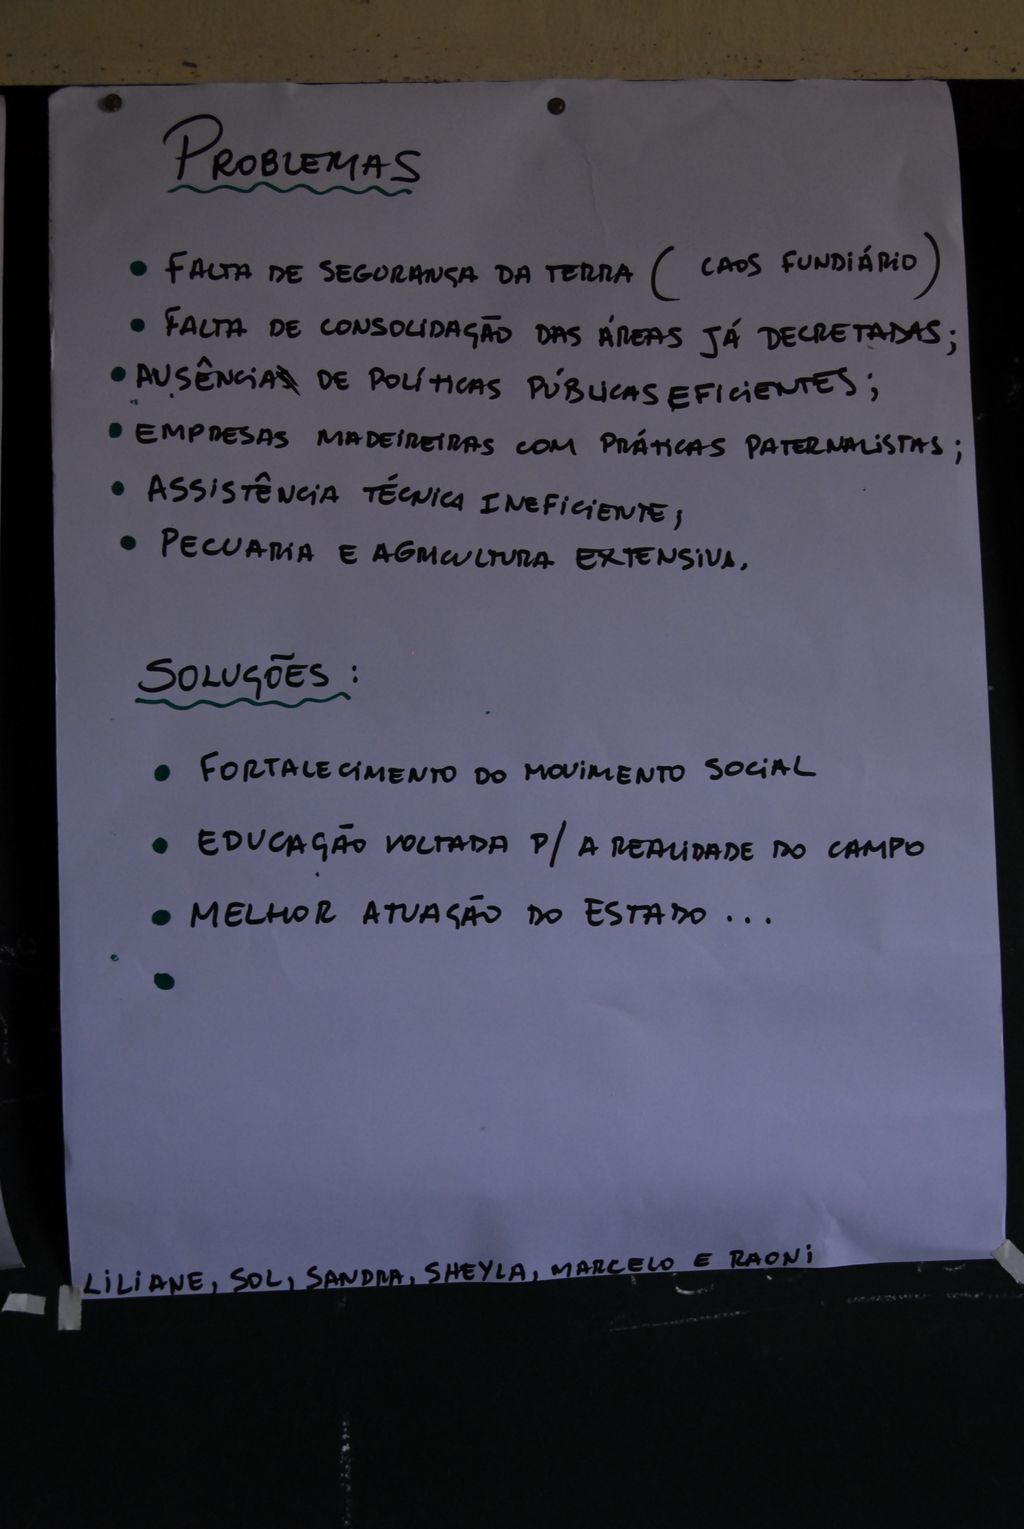 PROBLEMAS
• FALTA DE SEGURANÇA DA TERRA ( CAOS FUNDIÁRIO)
• FALTA DE CONSOLIDAÇÃO DAS ÁREAS JÁ DECRETADAS;
• AUSÊNCIA DE POLÍTICAS PÚBLICAS EFICIENTES;
• EMPRESAS MADEIREIRAS COM PRÁTICAS PATERNALISTAS;
• ASSISTÊNCIA TÉCNICA INEFICIENTE;
• PECUARIA E AGRICULTURA EXTENSIVA.
SOLUÇÕES:
• FORTALECIMENTO DO MOVIMENTO SOCIAL
• EDUCAÇÃO VOLTADA P/ A REALIDADE DO CAMPO
• MELHOR ATUAÇÃO DO ESTADO...
•
LILIANE, SOL, SANDRA, SHEYLA, MARCELO E RAONI